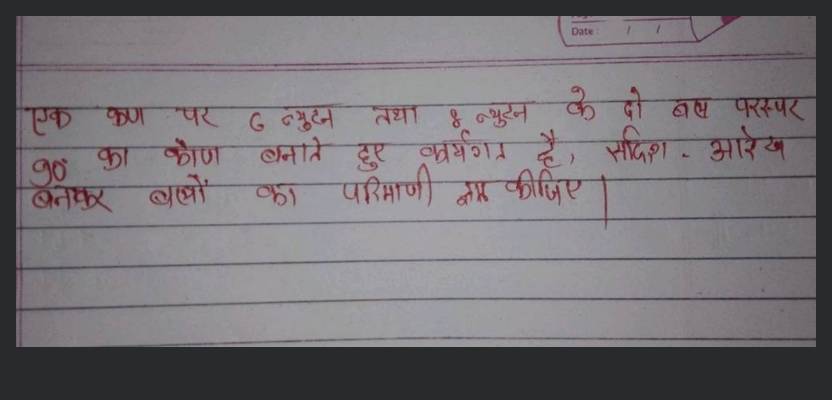 Date : / /
एक कण पर 6 न्युटन तथा 8 न्युटन के दो बल परस्पर
90° का कोण बनाते हुए कार्यगत है, सदिश - आरेख
बनाकर बलों का परिमाणी कीजिए |